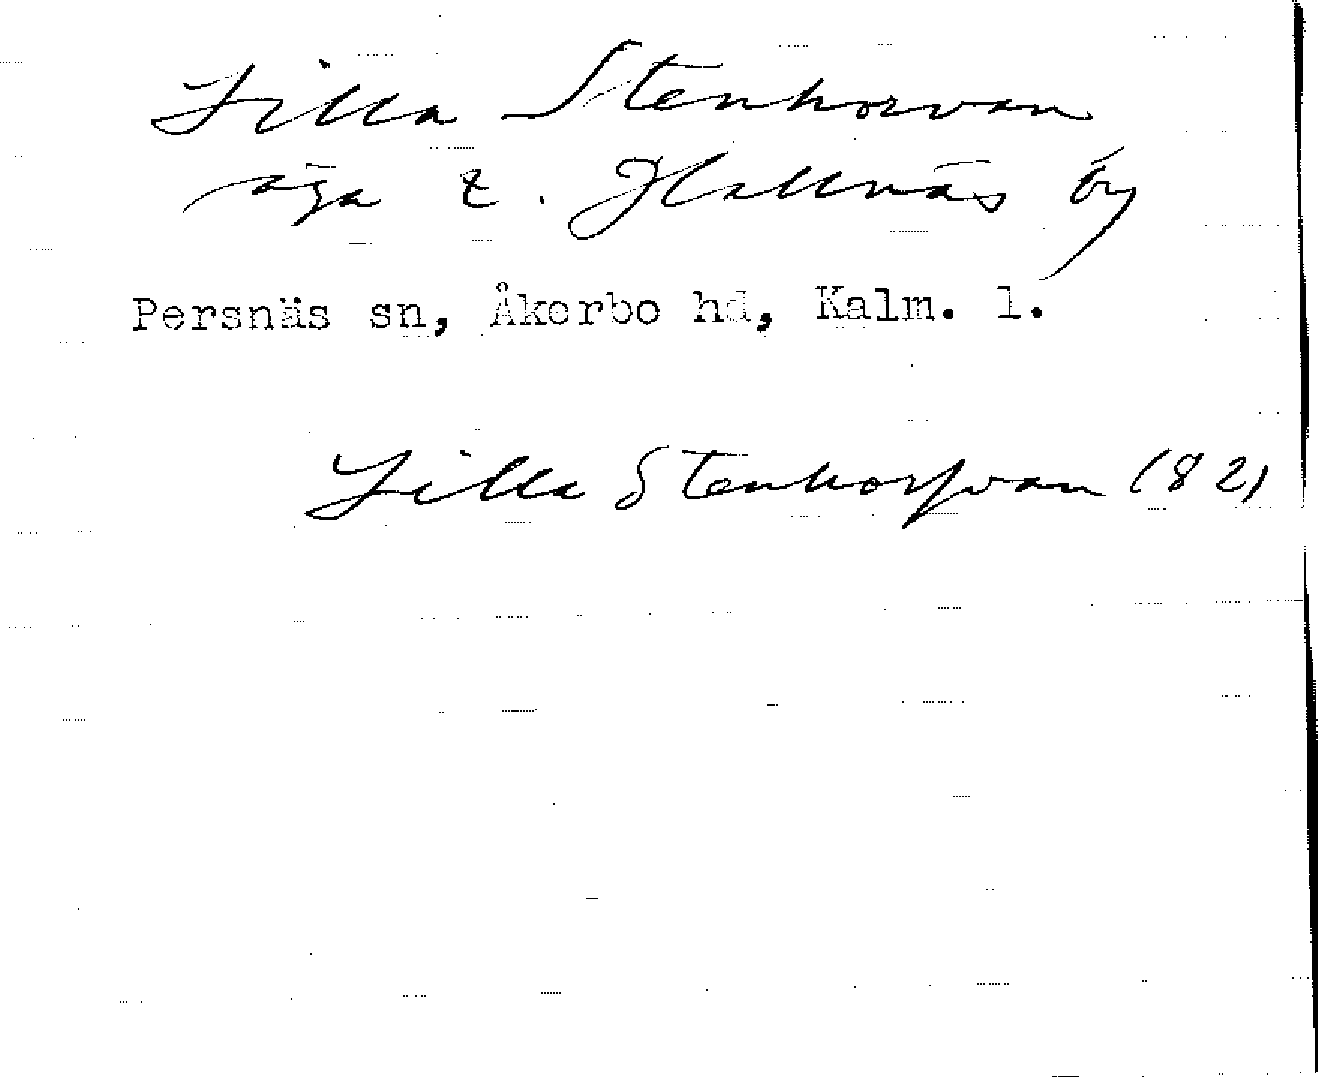 Lilla Stenhorvan
äga t. Hallnäs by
Persnäs sn, Åkerbo hd, Kalm. l.
Lilla Stenhorfvan (82)